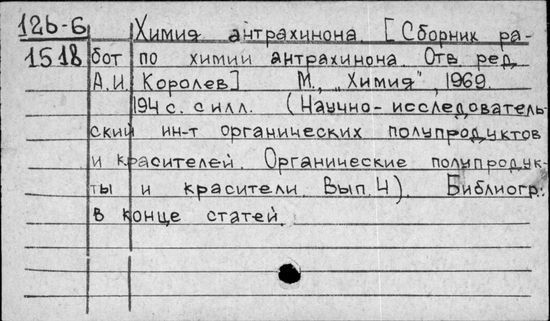 126-6 Химия антрахинона. [Сборник ра-
1518 бот по химии антрахинона. Отв. ред.
А.И. Королев] М., „Химия", 1969.
194 с. с илл. (Научно-исследователь-
ский ин-т органических полупродуктов
и красителей. Органические полупродук-
ты и красители. Вып. 4). Библиогр.:
в конце статей.